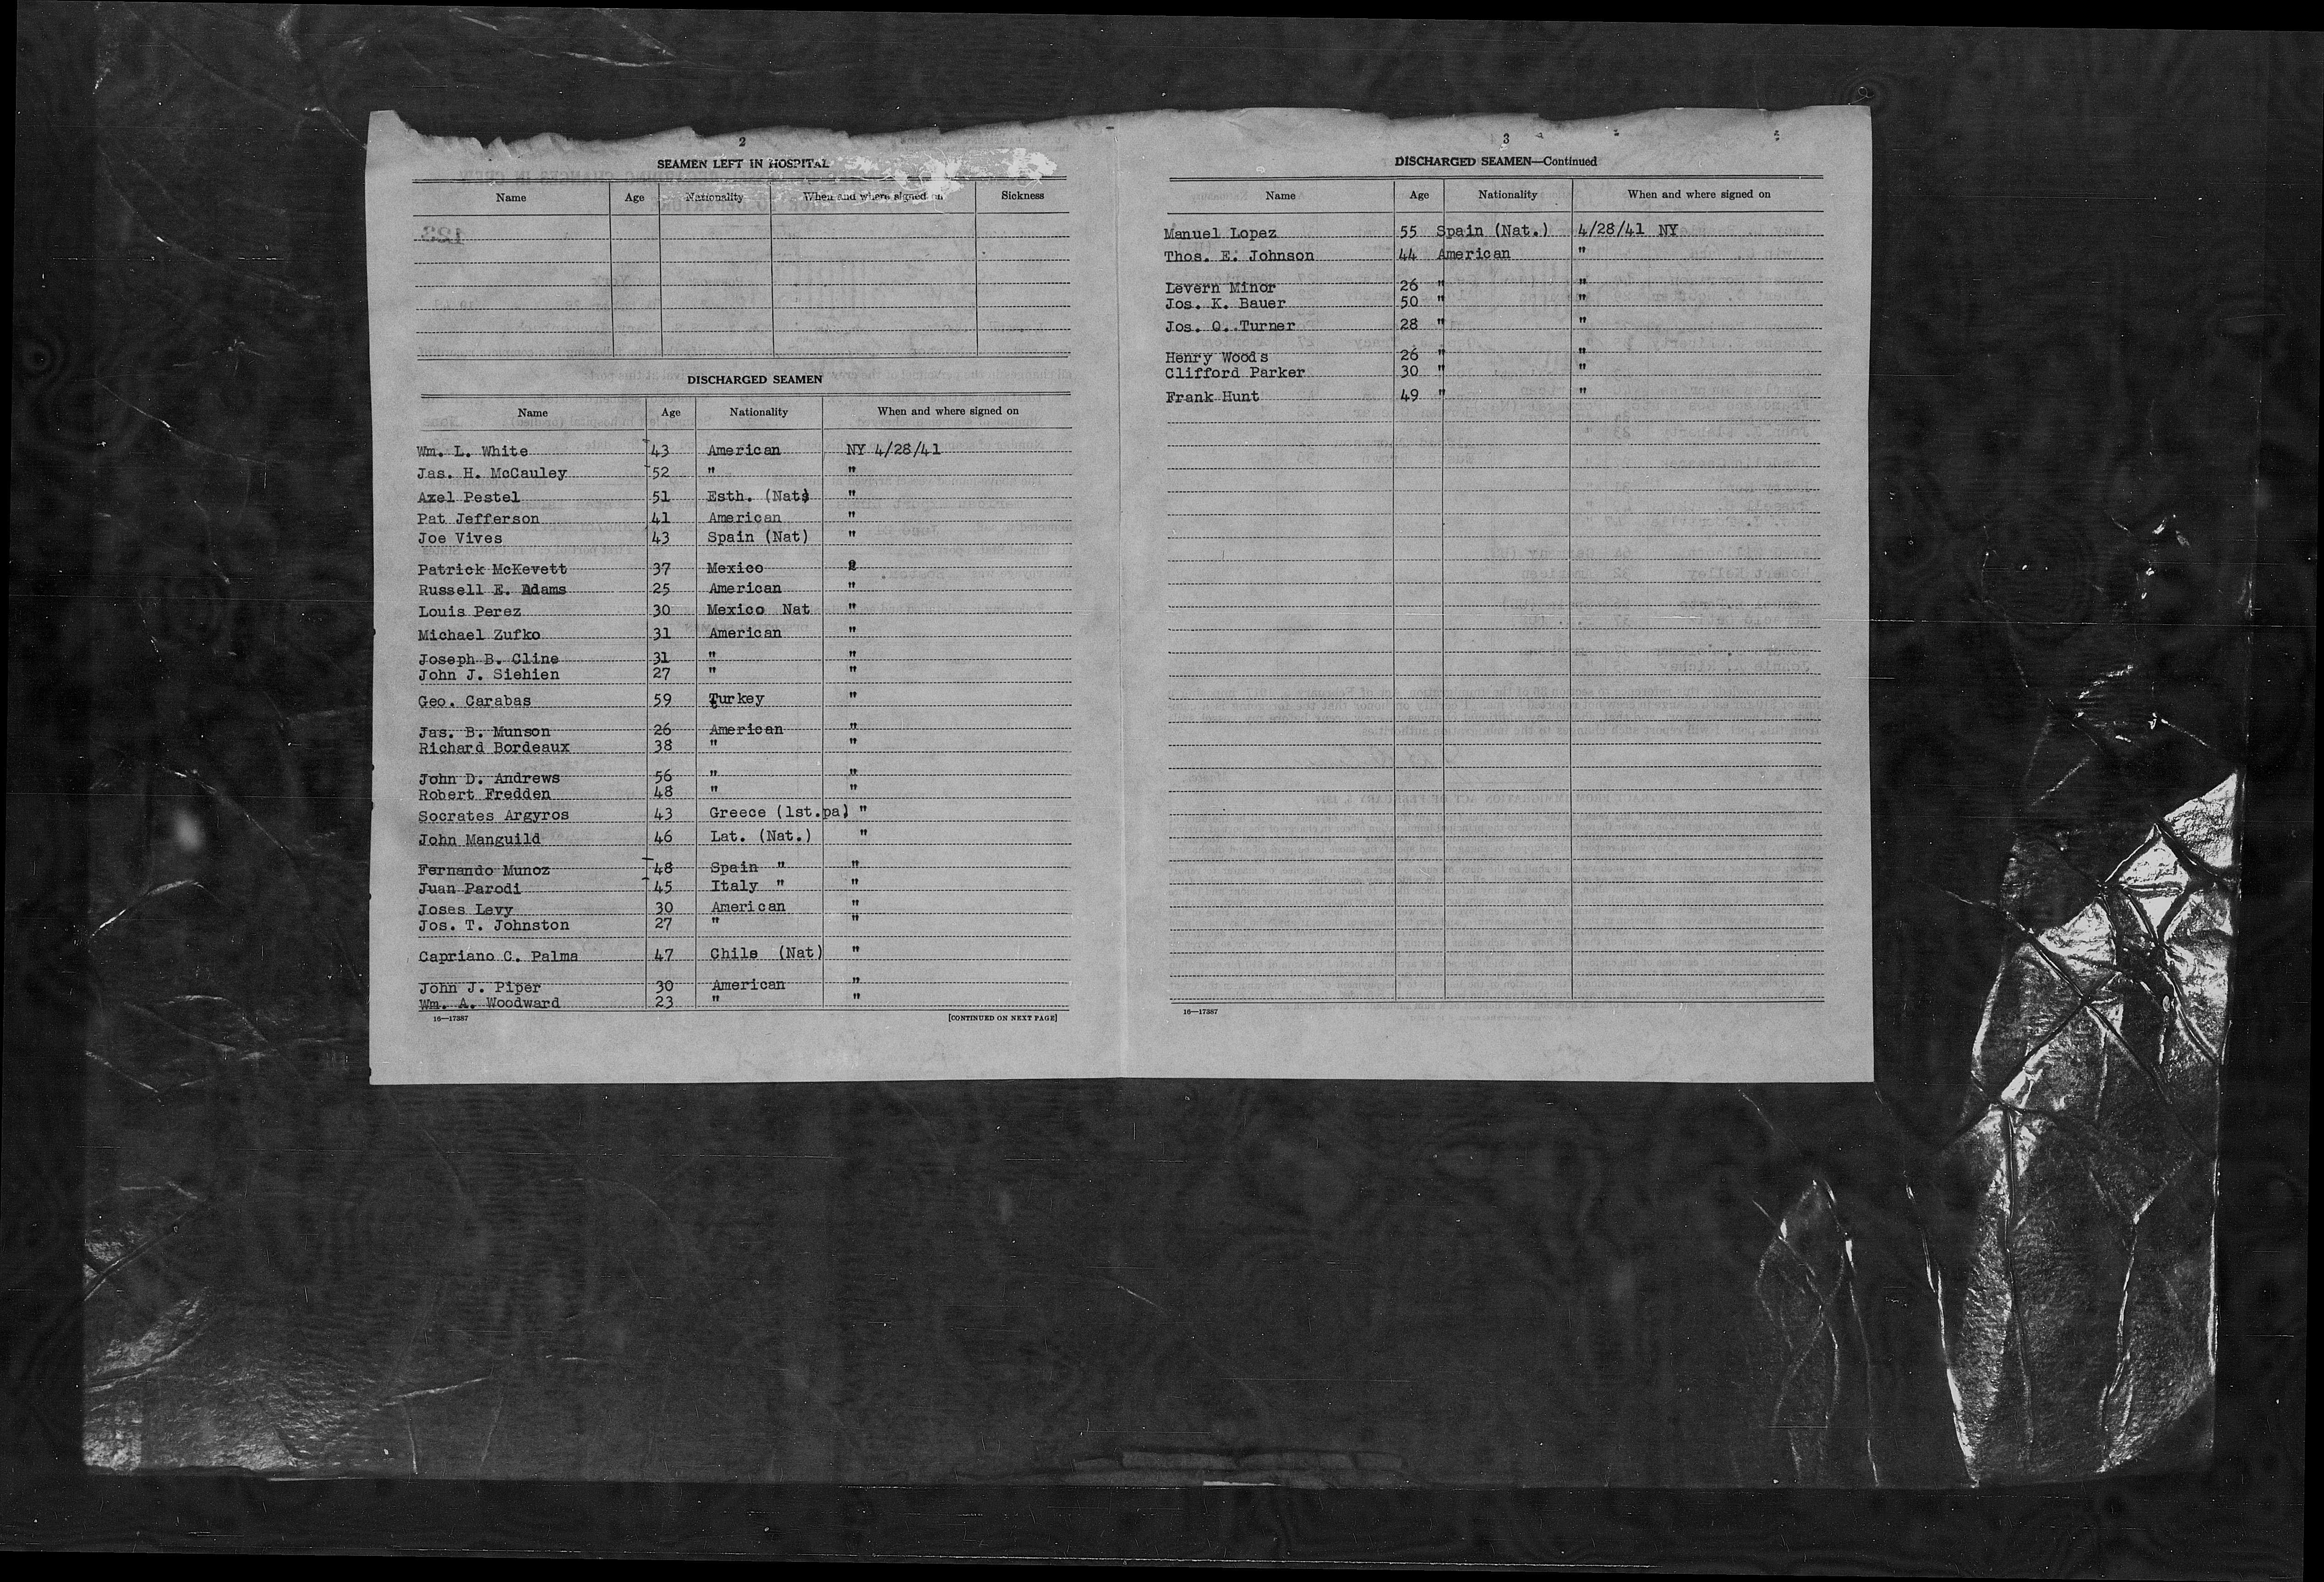 2
SEAMEN LEFT IN HOSPITAL
Name Age Nationality When and where signed on Sickness
DISCHARGED SEAMEN
Name Age Nationality When and where signed on
Wm. L. White 43 American NY 4/28/41
Jas. H. McCauley 52 " "
Axel Pestel 51 Esth. (Nat) "
Pat Jefferson 41 American "
Joe Vives 43 Spain (Nat) "
Patrick McKevett 37 Mexico "
Russell E. Adams 25 American "
Louis Perez 30 Mexico Nat "
Michael Zufko 31 American "
Joseph B. Cline 31 " "
John J. Siehien 27 " "
Geo. Carabas 59 Turkey "
Jas. B. Munson 26 American "
Richard Bordeaux 38 " "
John D. Andrews 56 " "
Robert Fredden 48 " "
Socrates Argyros 43 Greece (1st.pa) "
John Manguild 46 Lat. (Nat.) "
Fernando Munoz 48 Spain " "
Juan Parodi 45 Italy " "
Joses Levy 30 American "
Jos. T. Johnston 27 " "
Capriano C. Palma 47 Chile (Nat) "
John J. Piper 30 American "
Wm. A. Woodward 23 " "
16—17387 [CONTINUED ON NEXT PAGE]
3
DISCHARGED SEAMEN—Continued
Name Age Nationality When and where signed on
Manuel Lopez 55 Spain (Nat.) 4/28/41 NY
Thos. E. Johnson 44 American "
Levern Minor 26 " "
Jos. K. Bauer 50 " "
Jos. O. Turner 28 " "
Henry Woods 26 " "
Clifford Parker 30 " "
Frank Hunt 49 " "
16—17387